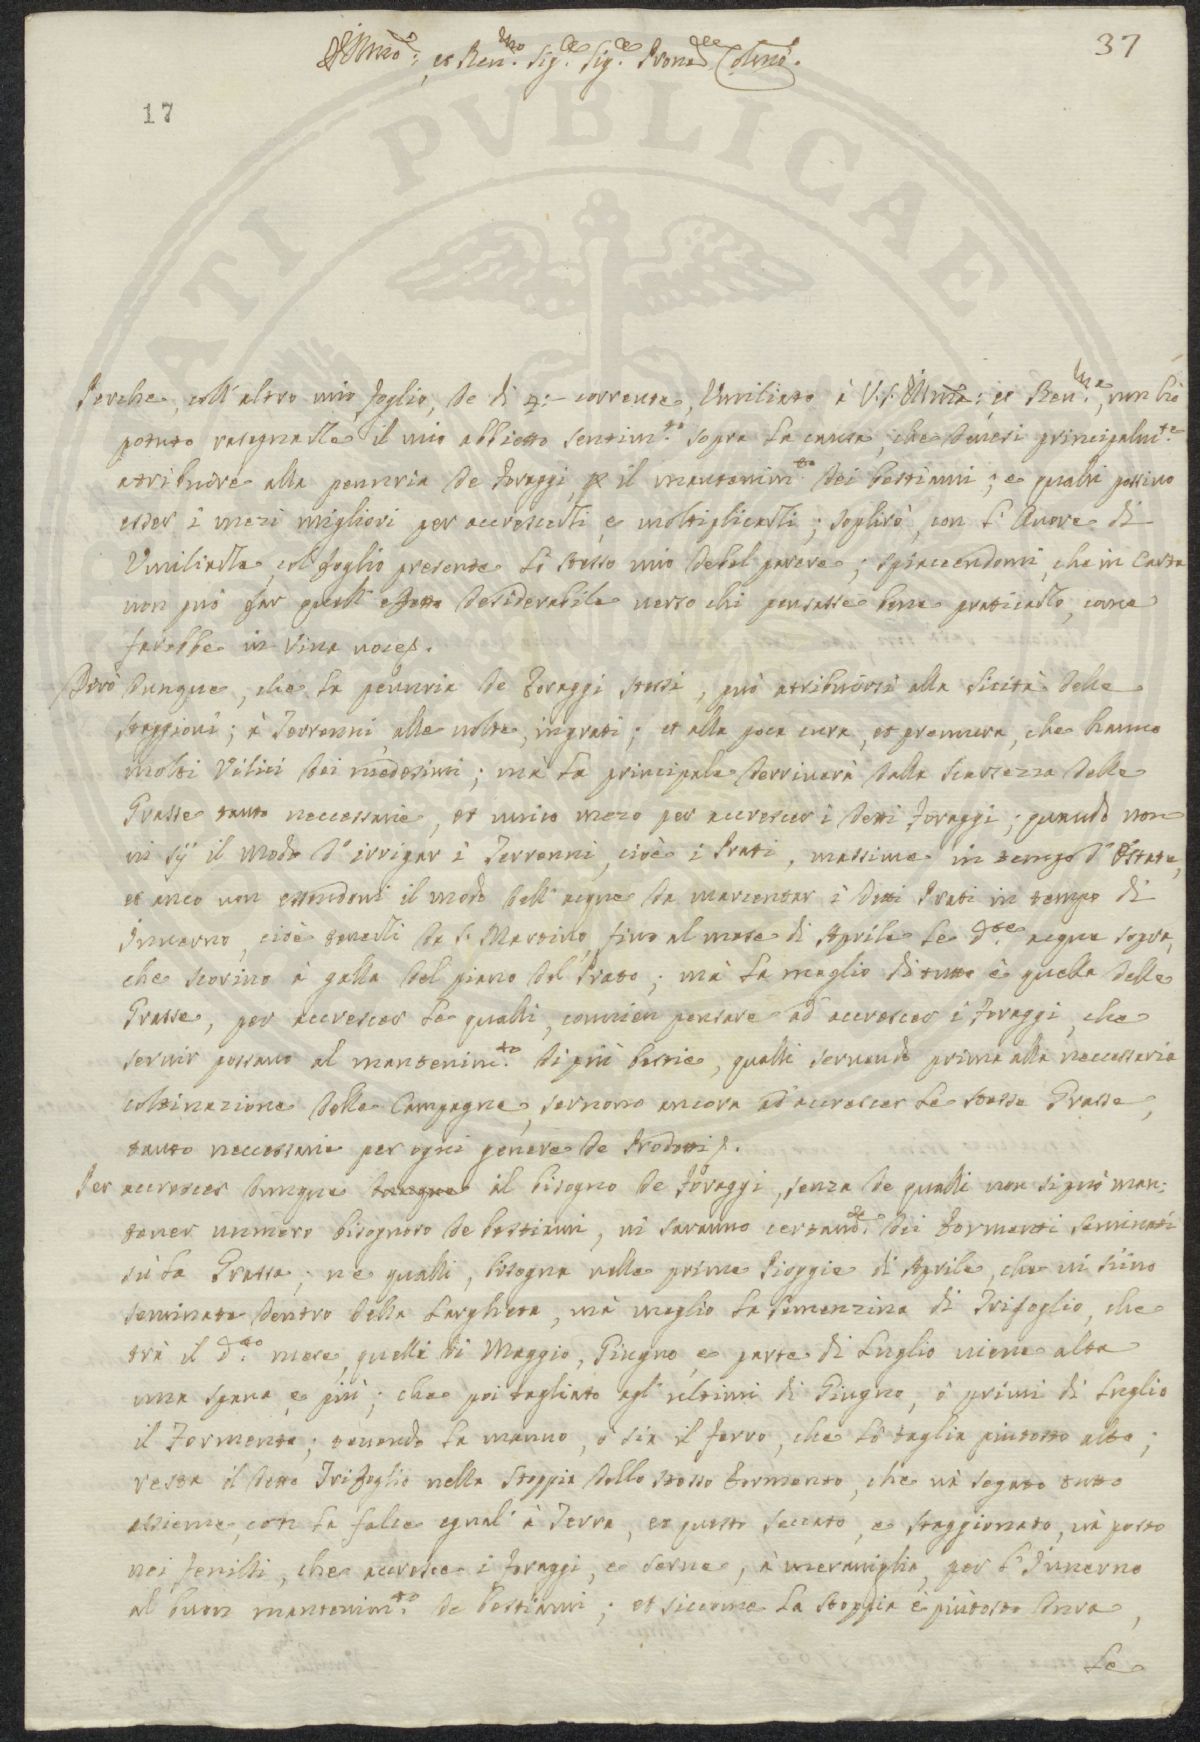 Illmo: et Revmo. Sigr. Sigr. Pron Colmo.
37
17
ATI PVBLICAE
Perche, coll'altro mio foglio, de di 4: corrente, Umiliato à V.S. Illma: et Revma, non hò
potuto rasegnarle il mio abbietto sentimto sopra la causa, che devesi principalmte
atribuire alla penuria de foraggi, p il mantenimto dei bestiami; e qualli possino
esser i mezi migliori per accrescerli, e moltiplicarli; soplirò, con l'Onore di
Umiliarle, col foglio presente lo stesso mio debol parere; spiacendomi, che in Carta
non può far quell'effetto desiderabile verso chi pensasse bene praticarlo, come
farebbe in viva voce.
Dirò dunque, che la penuria de foraggi stessi, può atribuirsi alla sicità delle
staggioni; à Terrenni, alle volte, ingrati; et alla poca cura, et premura, che hanno
molti Vilici dei medesimi; mà la principale derriverà dalla scarsezza delle
Grasse tanto neccessarie, et unico mezo per accrescer i detti foraggi; quando non
vi sij il modo d'irrigar i Terrenni, cioè i Prati, massime in tempo d'Estate,
et anco non essendovi il modo dell'acque da marcentar i detti Prati in tempo di
Inverno, cioè tenerli da S. Martino, fino al mese di Aprile le dte acque sopra,
che scorino à galla del piano del Prato; mà la meglio di tutto è quella delle
Grasse, per accrescer le qualli, convien pensare ad accrescer i foraggi, che
servir possano al mantenimto di più bestie, qualli servendo prima alla neccessaria
coltivazione delle Campagne, servono ancora ad accrescer le stesse Grasse,
tanto neccessarie per ogni genere de Prodotti.
Per accrescer dunque dunque il bisogno de foraggi, senza de qualli non si può man:
tener numero bisognoso de bestiami, vi saranno certamte dei formenti seminati
sù la Grassa; ne qualli, bisogna nelle prime Pioggie di Aprile, che vi siino
seminate dentro della Largheta, mà meglio la semenzina di Trifoglio, che
trà il dto mese, quelli di Maggio, Giugno, e parte di Luglio viene alta
una spana, e più; che poi tagliato agl'ultimi di Giugno, ò primi di Luglio
il formento; tenendo la manno, ò sia il ferro, che lo taglia piutosto alto;
resta il detto Trifoglio nella stoppia dello stesso formento, che và segato tutto
assieme, con la falce egual'à Terra, et questo seccato, e staggionato, và posto
nei fenilli, che accresce i foraggi, e serve, à meraviglia, per l'Inverno
al buon mantenimto de bestiami; et siccome la stoppia è piutosto dura,
Le